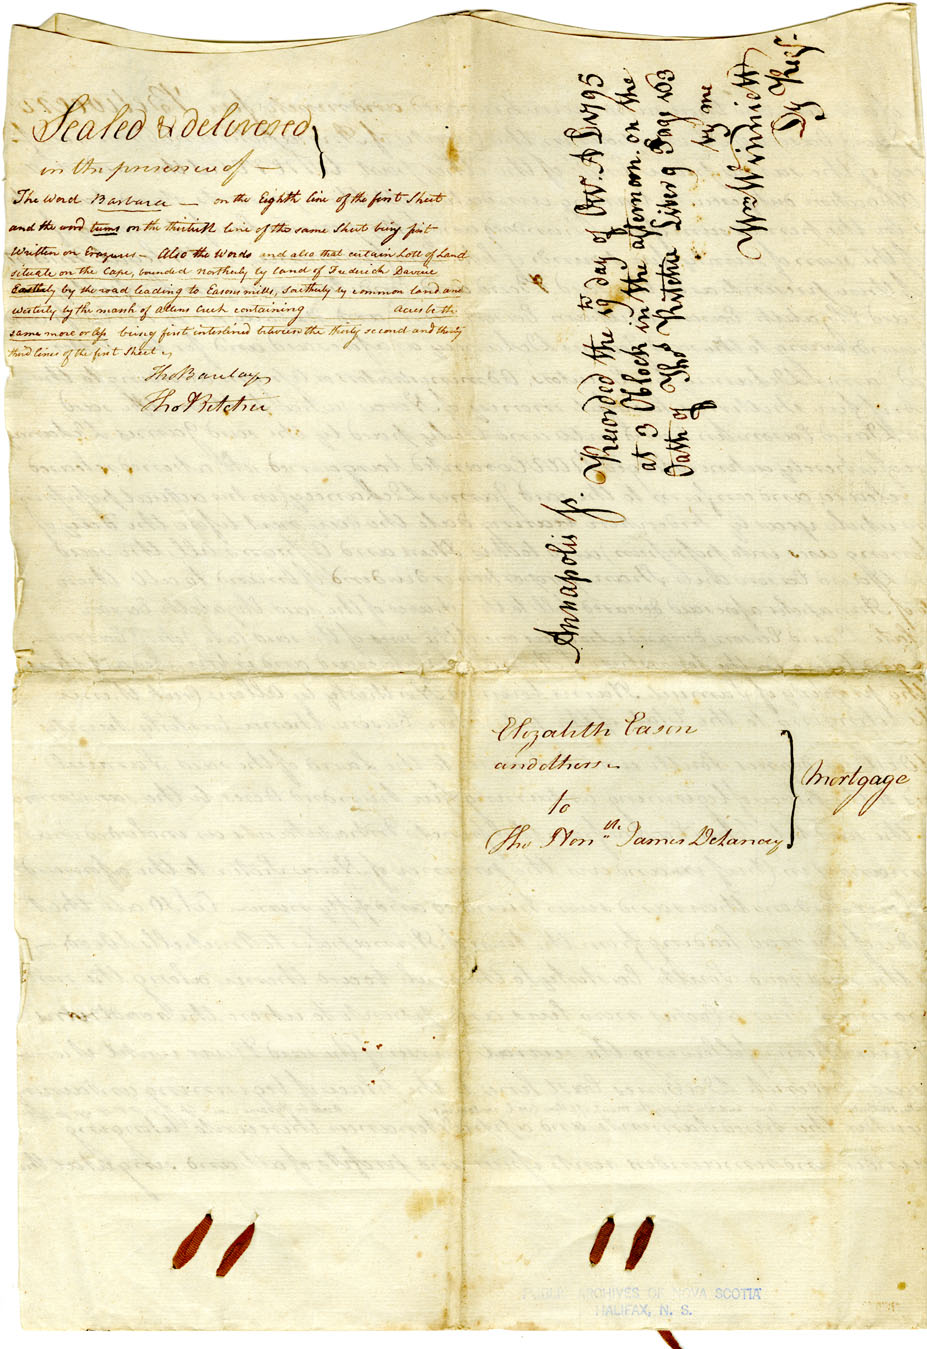 Sealed & delivered
in the presence of —
The Word Barbara — on the Eighth line of the first Sheet
and the word turns on the thirtieth line of the same Sheet being first
Written on Erazures — Also the Words and also that certain Lott of Land
situate on the Cape, bounded northerly by land of Frederick Davoue
Easterly by the road leading to Easons mills, southerly by common land and
westerly by the marsh of allens creek containing acres be the
same more or less being first interlined between the thirty second and thirty
third lines of the first Sheet
Tho Barclay
Tho Ritchie
Annapolis ss.
Recorded the 19 day of Nov. A D 1795
at 3 OClock in the afternoon on the
Oath of Thos Ritchie Liber 9 Page 103
by me
Wm Winniett
Dy Regr.
Elizabeth Eason
and others
to
The Honble James DeLancey
Mortgage
PUBLIC ARCHIVES OF NOVA SCOTIA
HALIFAX, N. S.